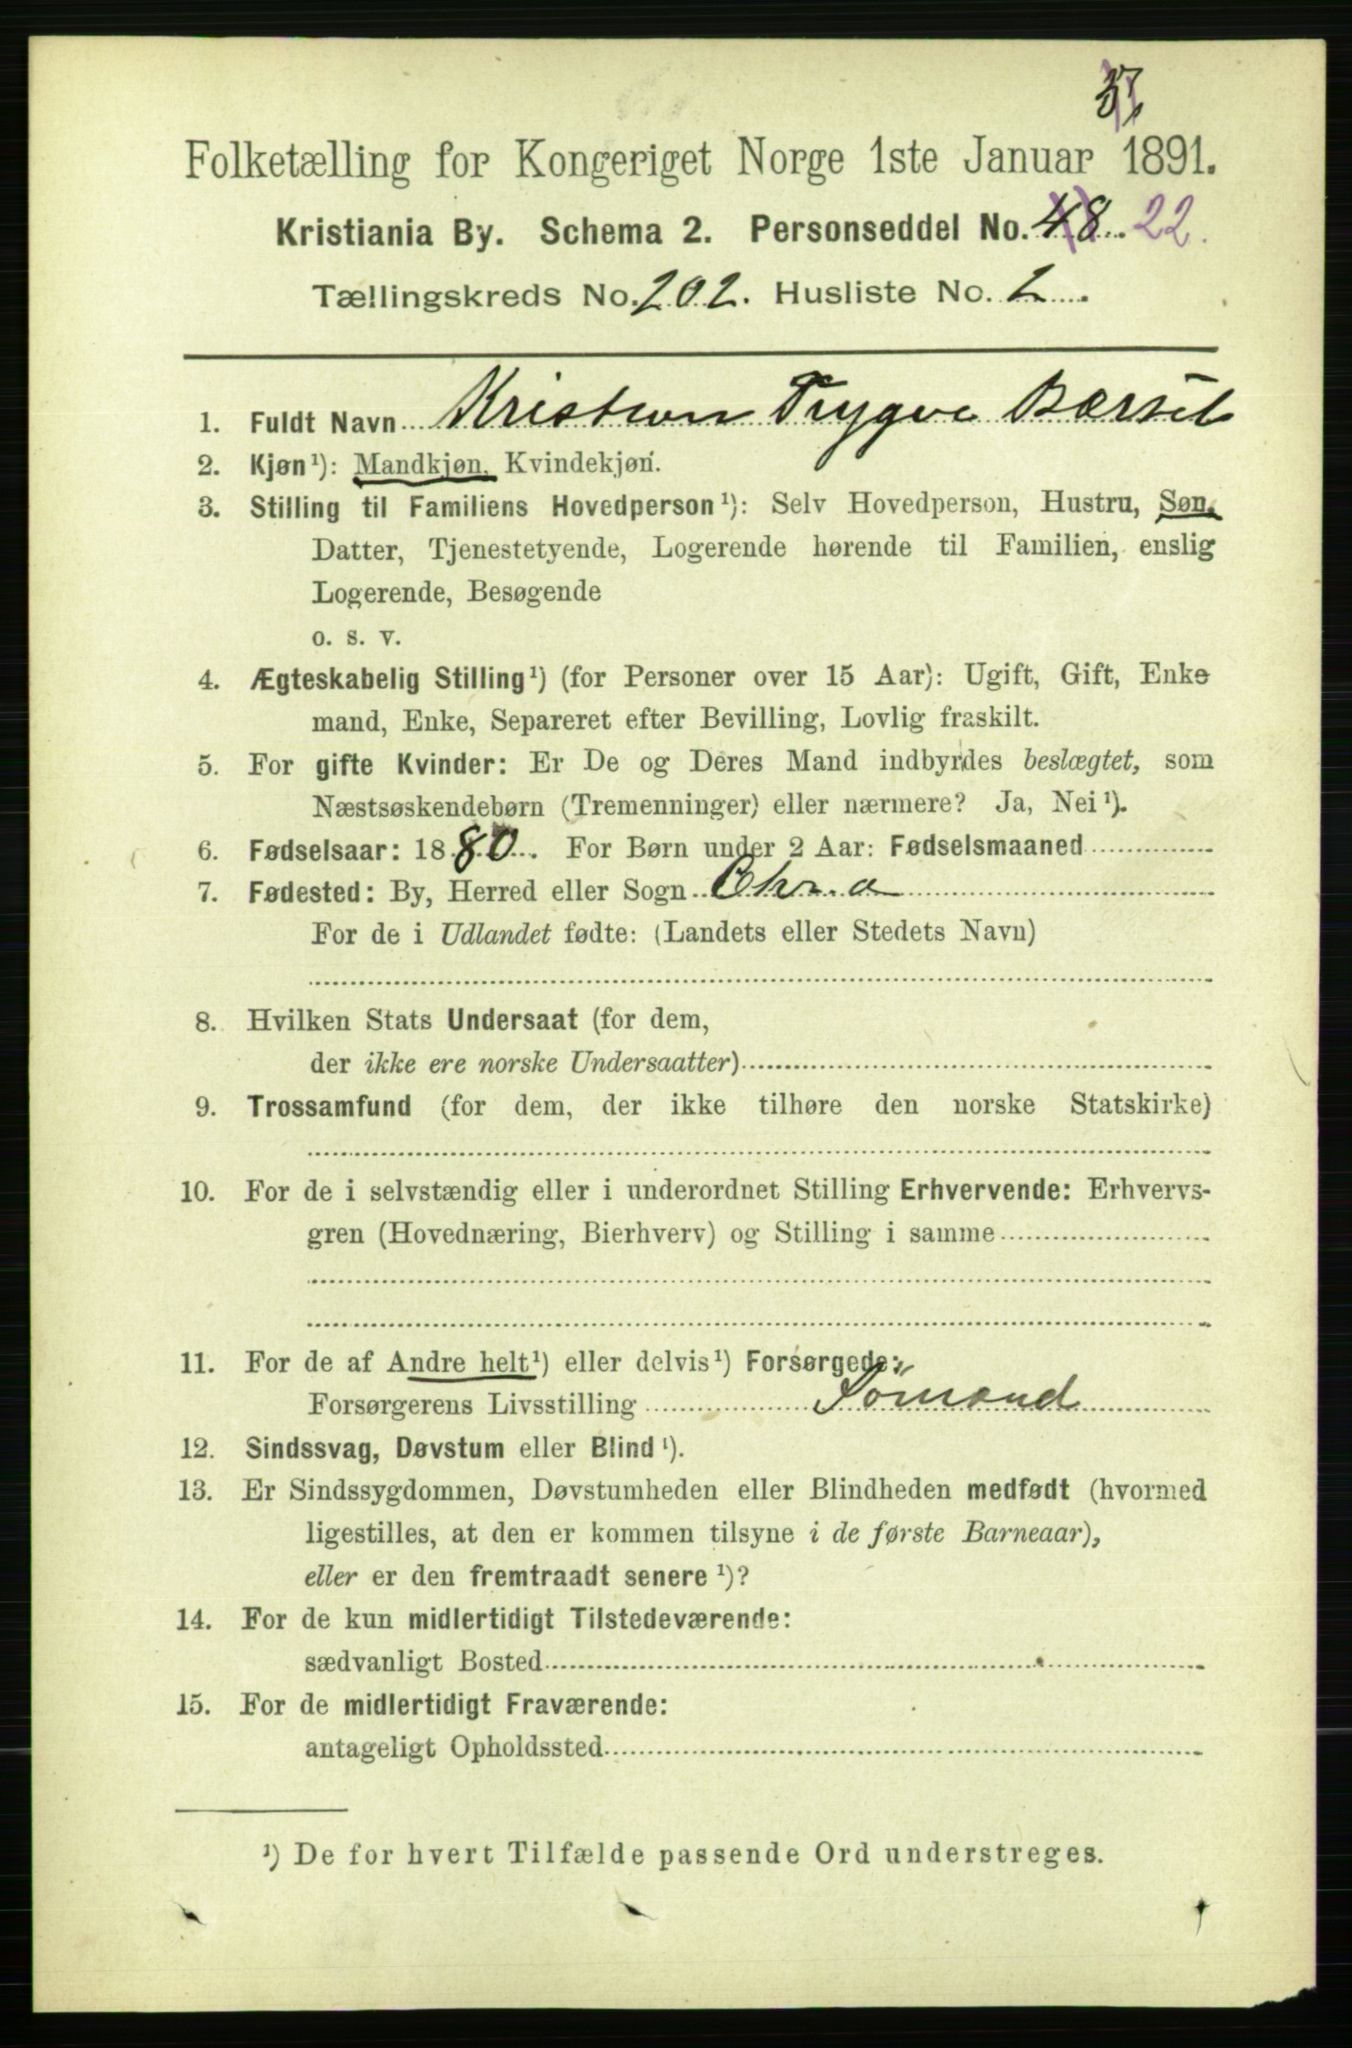 Folketælling for Kongeriget Norge 1ste Januar 1891.
Kristiania By. Schema 2. Personseddel No. 48 22.
Tællingskreds No. 202. Husliste No. 2.
1. Fuldt Navn Kristian Trygve Bærset
2. Kjøn¹): Mandkjøn, Kvindekjøn.
3. Stilling til Familiens Hovedperson¹): Selv Hovedperson, Hustru, Søn,
Datter, Tjenestetyende, Logerende hørende til Familien, enslig
Logerende, Besøgende
o. s. v.
4. Ægteskabelig Stilling¹) (for Personer over 15 Aar): Ugift, Gift, Enke
mand, Enke, Separeret efter Bevilling, Lovlig fraskilt.
5. For gifte Kvinder: Er De og Deres Mand indbyrdes beslægtet, som
Næstsøskendebørn (Tremenninger) eller nærmere? Ja, Nei¹).
6. Fødselsaar: 1880. For Børn under 2 Aar: Fødselsmaaned
7. Fødested: By, Herred eller Sogn Chr.a
For de i Udlandet fødte: (Landets eller Stedets Navn)
8. Hvilken Stats Undersaat (for dem,
der ikke ere norske Undersaatter)
9. Trossamfund (for dem, der ikke tilhøre den norske Statskirke)
10. For de i selvstændig eller i underordnet Stilling Erhvervende: Erhvervs-
gren (Hovednæring, Bierhverv) og Stilling i samme
11. For de af Andre helt¹) eller delvis¹) Forsørgede:
Forsørgerens Livsstilling Sömand
12. Sindssvag, Døvstum eller Blind¹).
13. Er Sindssygdommen, Døvstumheden eller Blindheden medfødt (hvormed
ligestilles, at den er kommen tilsyne i de første Barneaar),
eller er den fremtraadt senere¹)?
14. For de kun midlertidigt Tilstedeværende:
sædvanligt Bosted
15. For de midlertidigt Fraværende:
antageligt Opholdssted
¹) De for hvert Tilfælde passende Ord understreges.